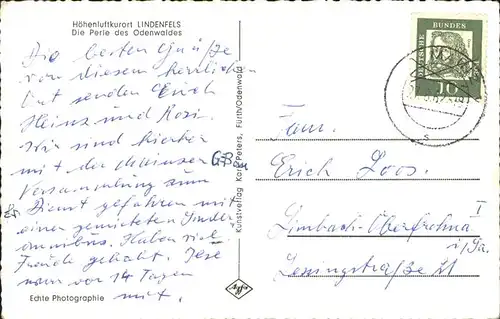 Höhenluftkurort LINDENFELS
Die Perle des Odenwaldes
Die besten Grüße
von diesem herrlichen
Ort senden Euch
Heinz und Rosi.
Wir sind hierher
mit der Mainzer
Versammlung zum
Dienst gefahren mit
einer gemieteten
omnibus. Haben viel
Freude gehabt.
vor 14 Tagen
mit.
Echte Photographie
Kunstverlag Karl Peters, Fürth/Odenwald
Agfa
DEUTSCHE BUNDES
10
Fam.
Erich Loos.
Limbach-Oberfrohna I
i/Sa.
Lessingstraße 21